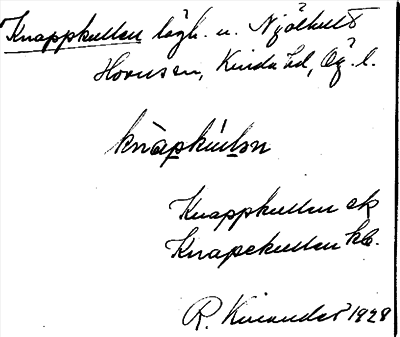 Knappkullen lägh. u. Njölhult
Hornsen, Kinda hd, Ög. l.
knàpkúlən
Knappkullen ek
Knapekullen kb.
R. Kinander 1929